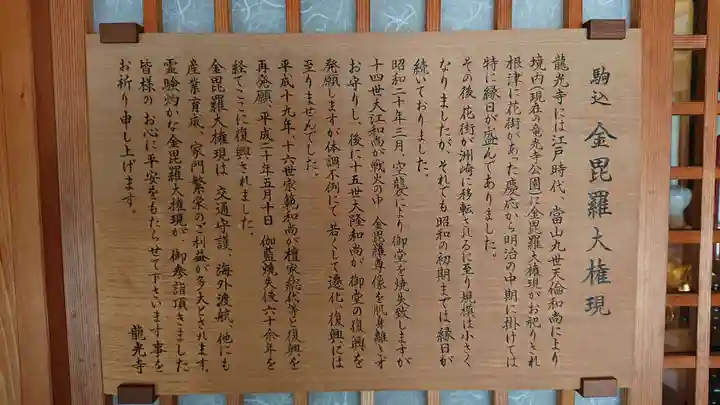 駒込 金毘羅大権現
龍光寺には江戸時代、當山九世天倫和尚により
境内(現在の竜光寺公園)に金毘羅大権現がお祀りされ
根津に花街があった慶応から明治の中期に掛けては
特に縁日が盛んでありました。
その後、花街が洲崎に移転されるに至り規模は小さく
なりましたが、それでも昭和の初期までは縁日が
続いておりました。
昭和二十年三月、空襲により御堂を焼失致しますが
十四世大江和尚が戦火の中、金毘羅尊像を肌身離さず
お守りし、後に十五世大隆和尚が、御堂の復興を
発願しますが体調不例にて若くして遷化、復興には
至りませんでした。
平成十九年、十六世宗範和尚が檀家総代等と復興を
再発願、平成二十年五月十日 伽藍焼失後六十余年を
経てここに復興されました。
金毘羅大権現は、交通守護、海外渡航、他にも
産業育成、家門繁栄のご利益が多大とされます。
霊験灼かな金毘羅大権現が、御参詣頂きました
皆様のお心に平安をもたらせて下さいます事を
お祈り申し上げます。
龍光寺